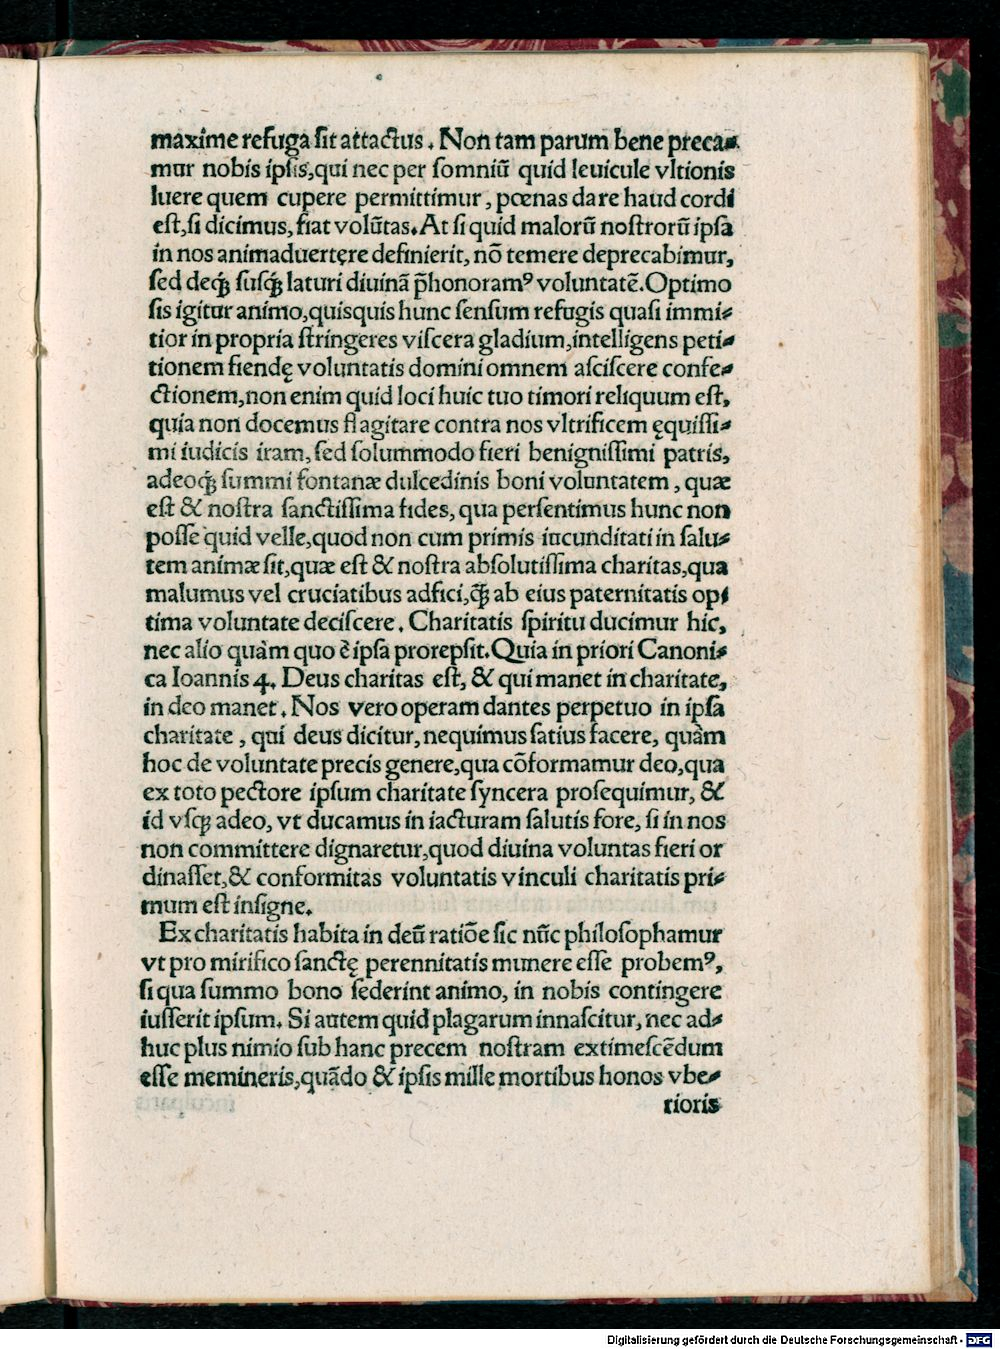 maxime refuga sit attactus. Non tam parum bene preca-
mur nobis ipsis, qui nec per somniũ quid leuicule vltionis
luere quem cupere permittimur, pœnas dare haud cordi
est, si dicimus, fiat volũtas. At si quid malorũ nostrorũ ipsa
in nos animaduertęre definierit, nõ temere deprecabimur,
sed deqꝫ susqꝫ laturi diuinã p̃honoramꝰ voluntatẽ. Optimo
sis igitur animo, quisquis hunc sensum refugis quasi immi-
tior in propria stringeres viscera gladium, intelligens peti-
tionem fiendę voluntatis domini omnem asciscere confe-
ctionem, non enim quid loci huic tuo timori reliquum est,
quia non docemus flagitare contra nos vltrificem ęquissi-
mi iudicis iram, sed solummodo fieri benignissimi patris,
adeoqꝫ summi fontanæ dulcedinis boni voluntatem, quæ
est & nostra sanctissima fides, qua persentimus hunc non
posse quid velle, quod non cum primis iucunditati in salu-
tem animæ sit, quæ est & nostra absolutissima charitas, qua
malumus vel cruciatibus adfici, q̃ꝫ ab eius paternitatis op-
tima voluntate deciscere. Charitatis spiritu ducimur hic,
nec alio quàm quo ẽ ipsa prorepsit. Quia in priori Canoni-
ca Ioannis 4. Deus charitas est, & qui manet in charitate,
in deo manet. Nos vero operam dantes perpetuo in ipsa
charitate, qui deus dicitur, nequimus satius facere, quàm
hoc de voluntate precis genere, qua cõformamur deo, qua
ex toto pectore ipsum charitate syncera prosequimur, &
id vsqꝫ adeo, vt ducamus in iacturam salutis fore, si in nos
non committere dignaretur, quod diuina voluntas fieri or
dinasset, & conformitas voluntatis vinculi charitatis pri-
mum est insigne.
Ex charitatis habita in deũ ratiõe sic nũc philosophamur
vt pro mirifico sanctę perennitatis munere esse probemꝰ,
si qua summo bono sederint animo, in nobis contingere
iusserit ipsum. Si autem quid plagarum innascitur, nec ad-
huc plus nimio sub hanc precem nostram extimescẽdum
esse memineris, quãdo & ipsis mille mortibus honos vbe-
rioris
Digitalisierung gefördert durch die Deutsche Forschungsgemeinschaft - DFG